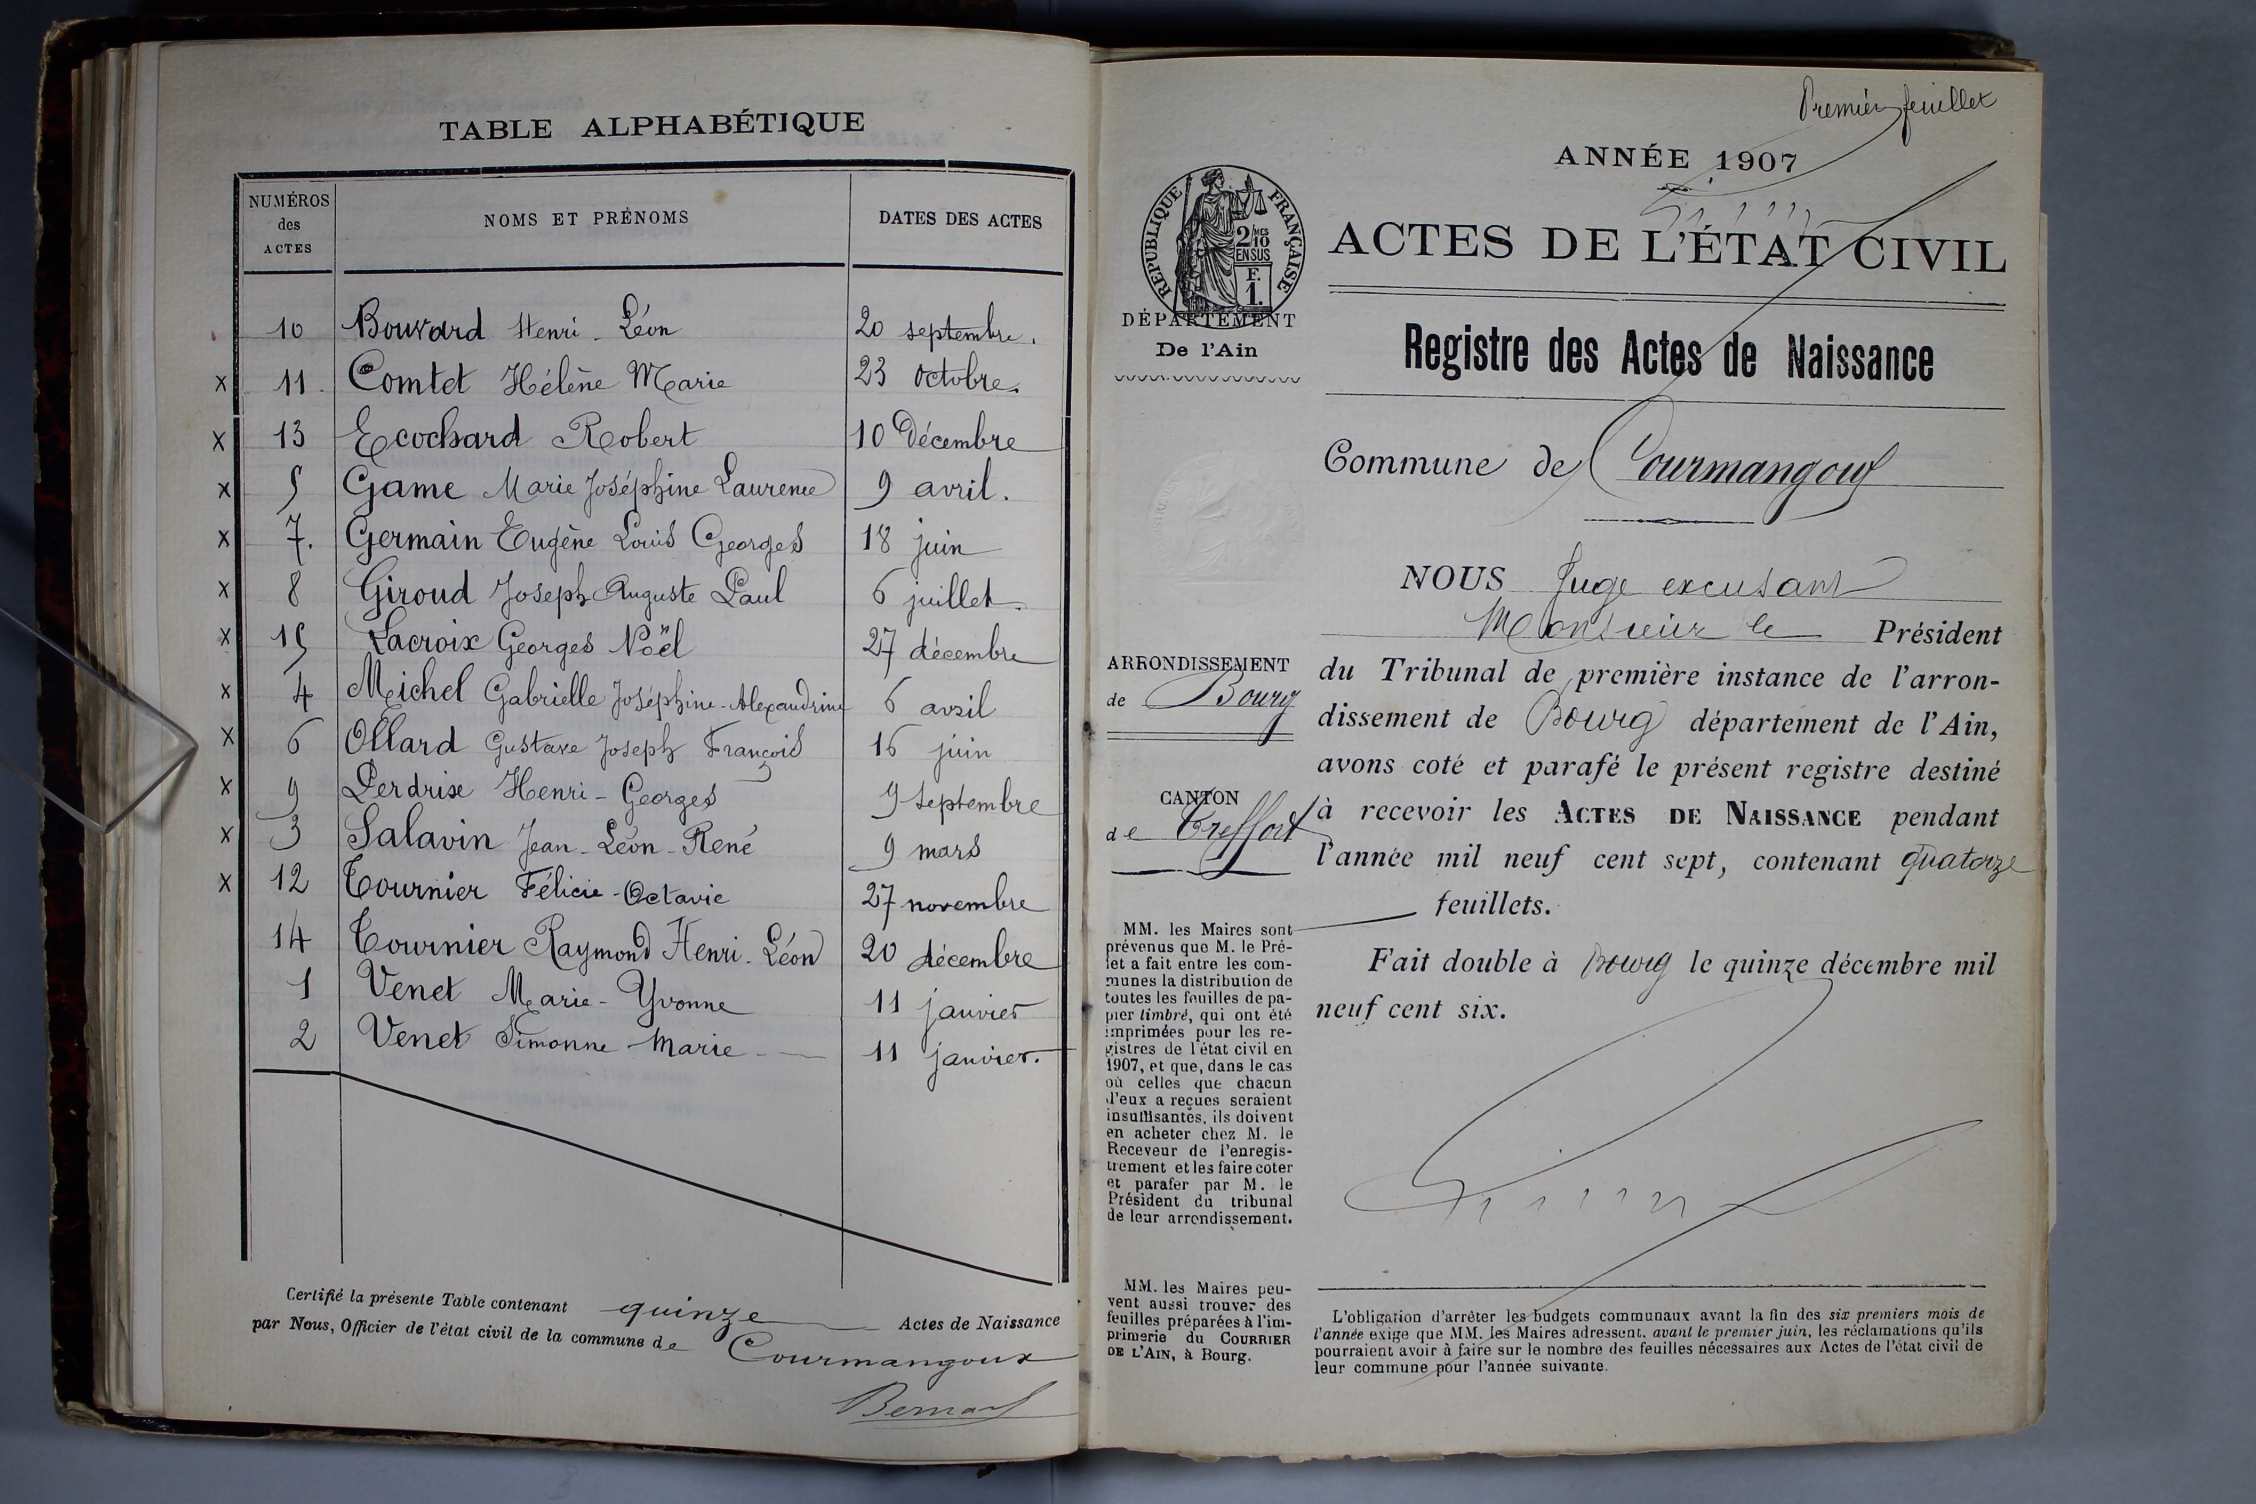 TABLE ALPHABÉTIQUE
NUMÉROS des ACTES NOMS ET PRÉNOMS DATES DES ACTES
10 Bouvard Henri - Léon 20 septembre.
x 11. Comtet Hélène Marie 23 octobre.
x 13 Ecochard Robert 10 Décembre
x 5 Game Marie Joséphine Laurence 9 avril.
x 7. Germain Eugène Louis Georges 18 juin
x 8 Giroud Joseph Auguste Paul 6 juillet.
x 15 Lacroix Georges Noël 27 décembre
x 4 Michel Gabrielle Joséphine-Alexandrine 6 avril
x 6 Ollard Gustave Joseph François 16 juin
x 9 Perdrix Henri - Georges 9 septembre
x 3 Salavin Jean - Léon - René 9 mars
x 12 Tournier Félicie - Octavie 27 novembre
14 Tournier Raymond Henri - Léon 20 décembre
1 Venet Marie - Yvonne 11 janvier
2 Venet Simonne Marie 11 janvier.
Certifié la présente Table contenant quinze Actes de Naissance
par Nous, Officier de l'état civil de la commune de Courmangoux
Bernard
Premier feuillet
ANNÉE 1907
RÉPUBLIQUE FRANÇAISE
2/10 MES
EN SUS
F.
1.
ACTES DE L'ÉTAT CIVIL
DÉPARTEMENT
De l'Ain
Registre des Actes de Naissance
Commune de Courmangoux
NOUS Juge excusant
Monsieur le Président
du Tribunal de première instance de l'arron-
dissement de Bourg département de l'Ain,
avons coté et parafé le présent registre destiné
à recevoir les ACTES DE NAISSANCE pendant
l'année mil neuf cent sept, contenant quatorze
feuillets.
Fait double à Bourg le quinze décembre mil
neuf cent six.
ARRONDISSEMENT
de Bourg
CANTON
de Treffort
MM. les Maires sont
prévenus que M. le Pré-
fet a fait entre les com-
munes la distribution de
toutes les feuilles de pa-
pier timbré, qui ont été
imprimées pour les re-
gistres de l'état civil en
1907, et que, dans le cas
où celles que chacun
d'eux a reçues seraient
insuffisantes, ils doivent
en acheter chez M. le
Receveur de l'enregis-
trement et les faire coter
et parafer par M. le
Président du tribunal
de leur arrondissement.
MM. les Maires peu-
vent aussi trouver des
feuilles préparées à l'im-
primerie du COURRIER
DE L'AIN, à Bourg.
L'obligation d'arrêter les budgets communaux avant la fin des six premiers mois de
l'année exige que MM. les Maires adressent, avant le premier juin, les réclamations qu'ils
pourraient avoir à faire sur le nombre des feuilles nécessaires aux Actes de l'état civil de
leur commune pour l'année suivante.